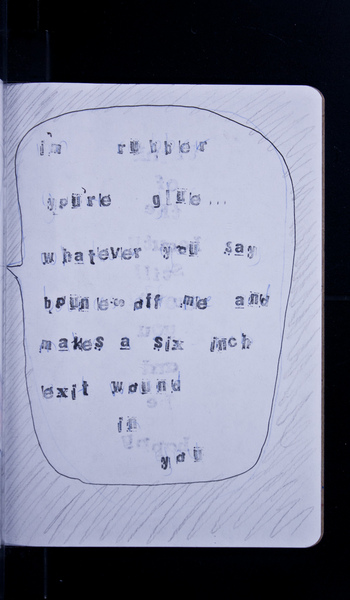 i'm rubber
you're glue...
whatever you say
bounces off me and
makes a six inch
exit wound
in
you